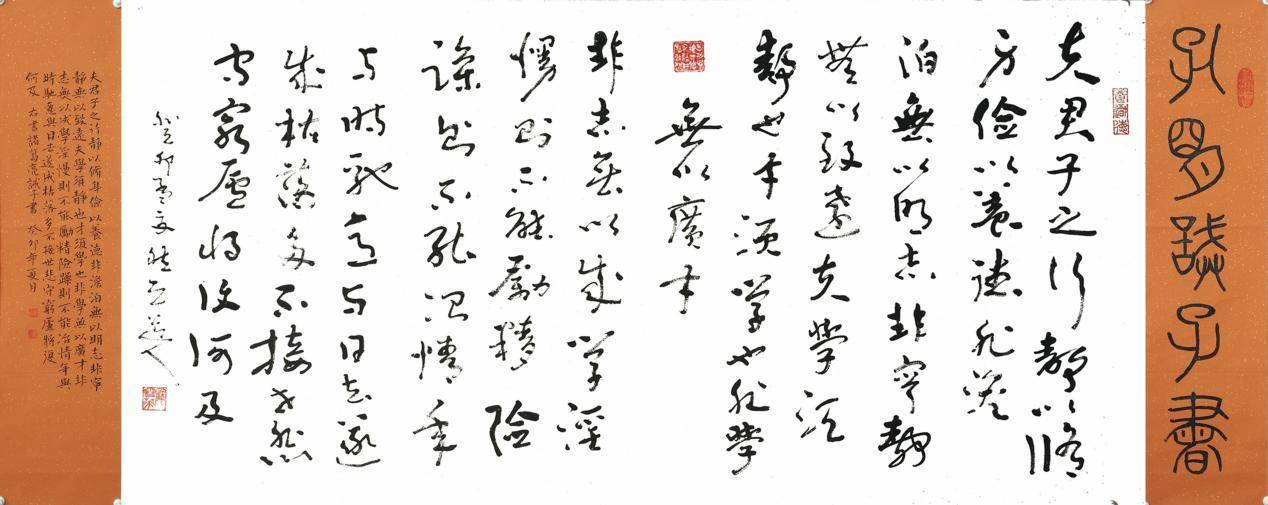 孔明誡子書
夫君子之行靜以脩
身儉以養德非澹
泊無以明志非寧靜
無以致遠夫學須
靜也才須學也非學
無以廣才
非志無以成學淫
慢則不能勵精險
躁則不能冶情年
与時馳意与日去遂
成枯落多不接世悲
守窮廬將復何及
癸卯夏文
夫君子之行靜以脩身儉以養德非澹泊無以明志非寧
靜無以致遠夫學須靜也才須學也非學無以廣才非
志無以成學淫慢則不能勵精險躁則不能冶情年與
時馳意與日去遂成枯落多不接世悲守窮廬將復
何及 右書諸葛亮誡子書 癸卯年夏月